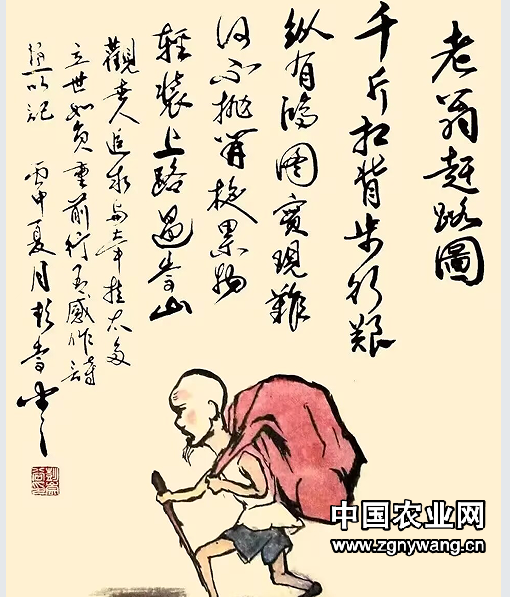 老翁趕路圖
千斤扛背步行艱
纵有鴻图實現難
何不抛開拖累物
輕裝上路過山
觀老人追求与牵挂太多
立世如負重前行有感作詩
以記 丙申夏月
中国农业网
www.zgnywang.cn